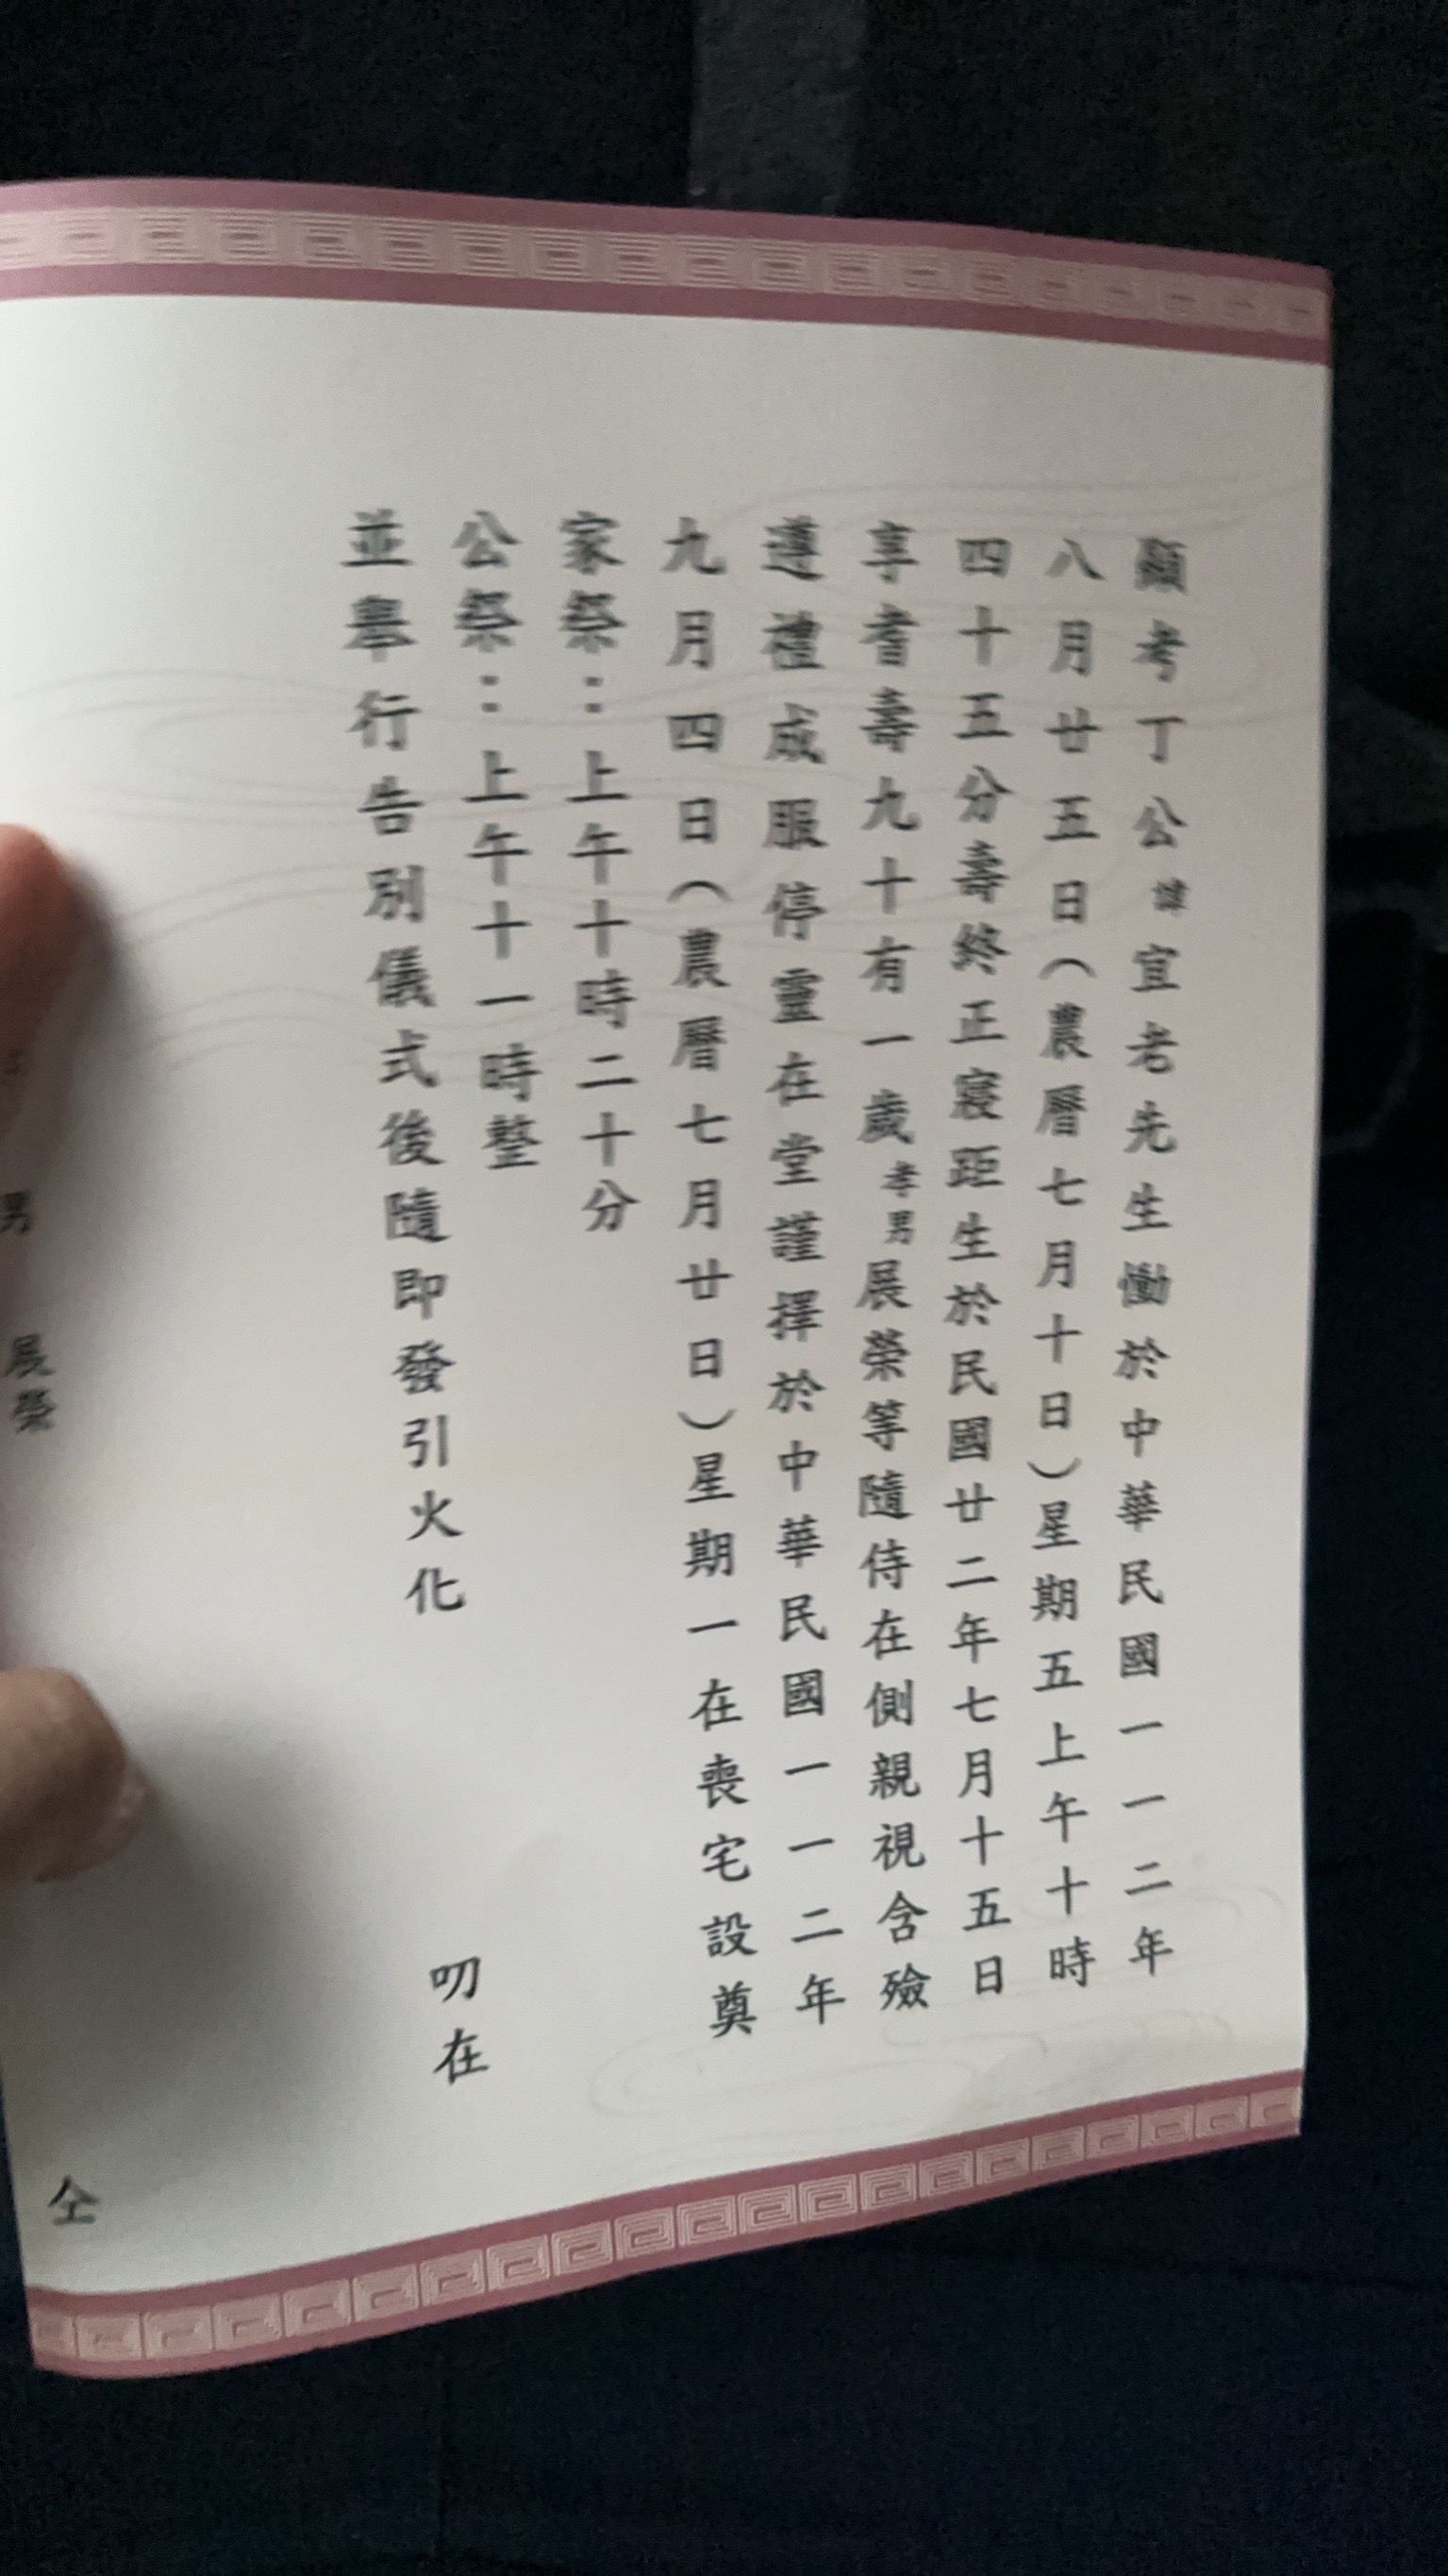 顯考丁公諱宜老先生慟於中華民國一一二年
八月廿五日（農曆七月十日）星期五上午十時
四十五分壽終正寢距生於民國廿二年七月十五日
享耆壽九十有一歲孝男展榮等隨侍在側親視含殮
遵禮成服停靈在堂謹擇於中華民國一一二年
九月四日（農曆七月廿日）星期一在喪宅設奠
家祭：上午十時二十分
公祭：上午十一時整
並舉行告別儀式後隨即發引火化
叨在
男 展榮
仝